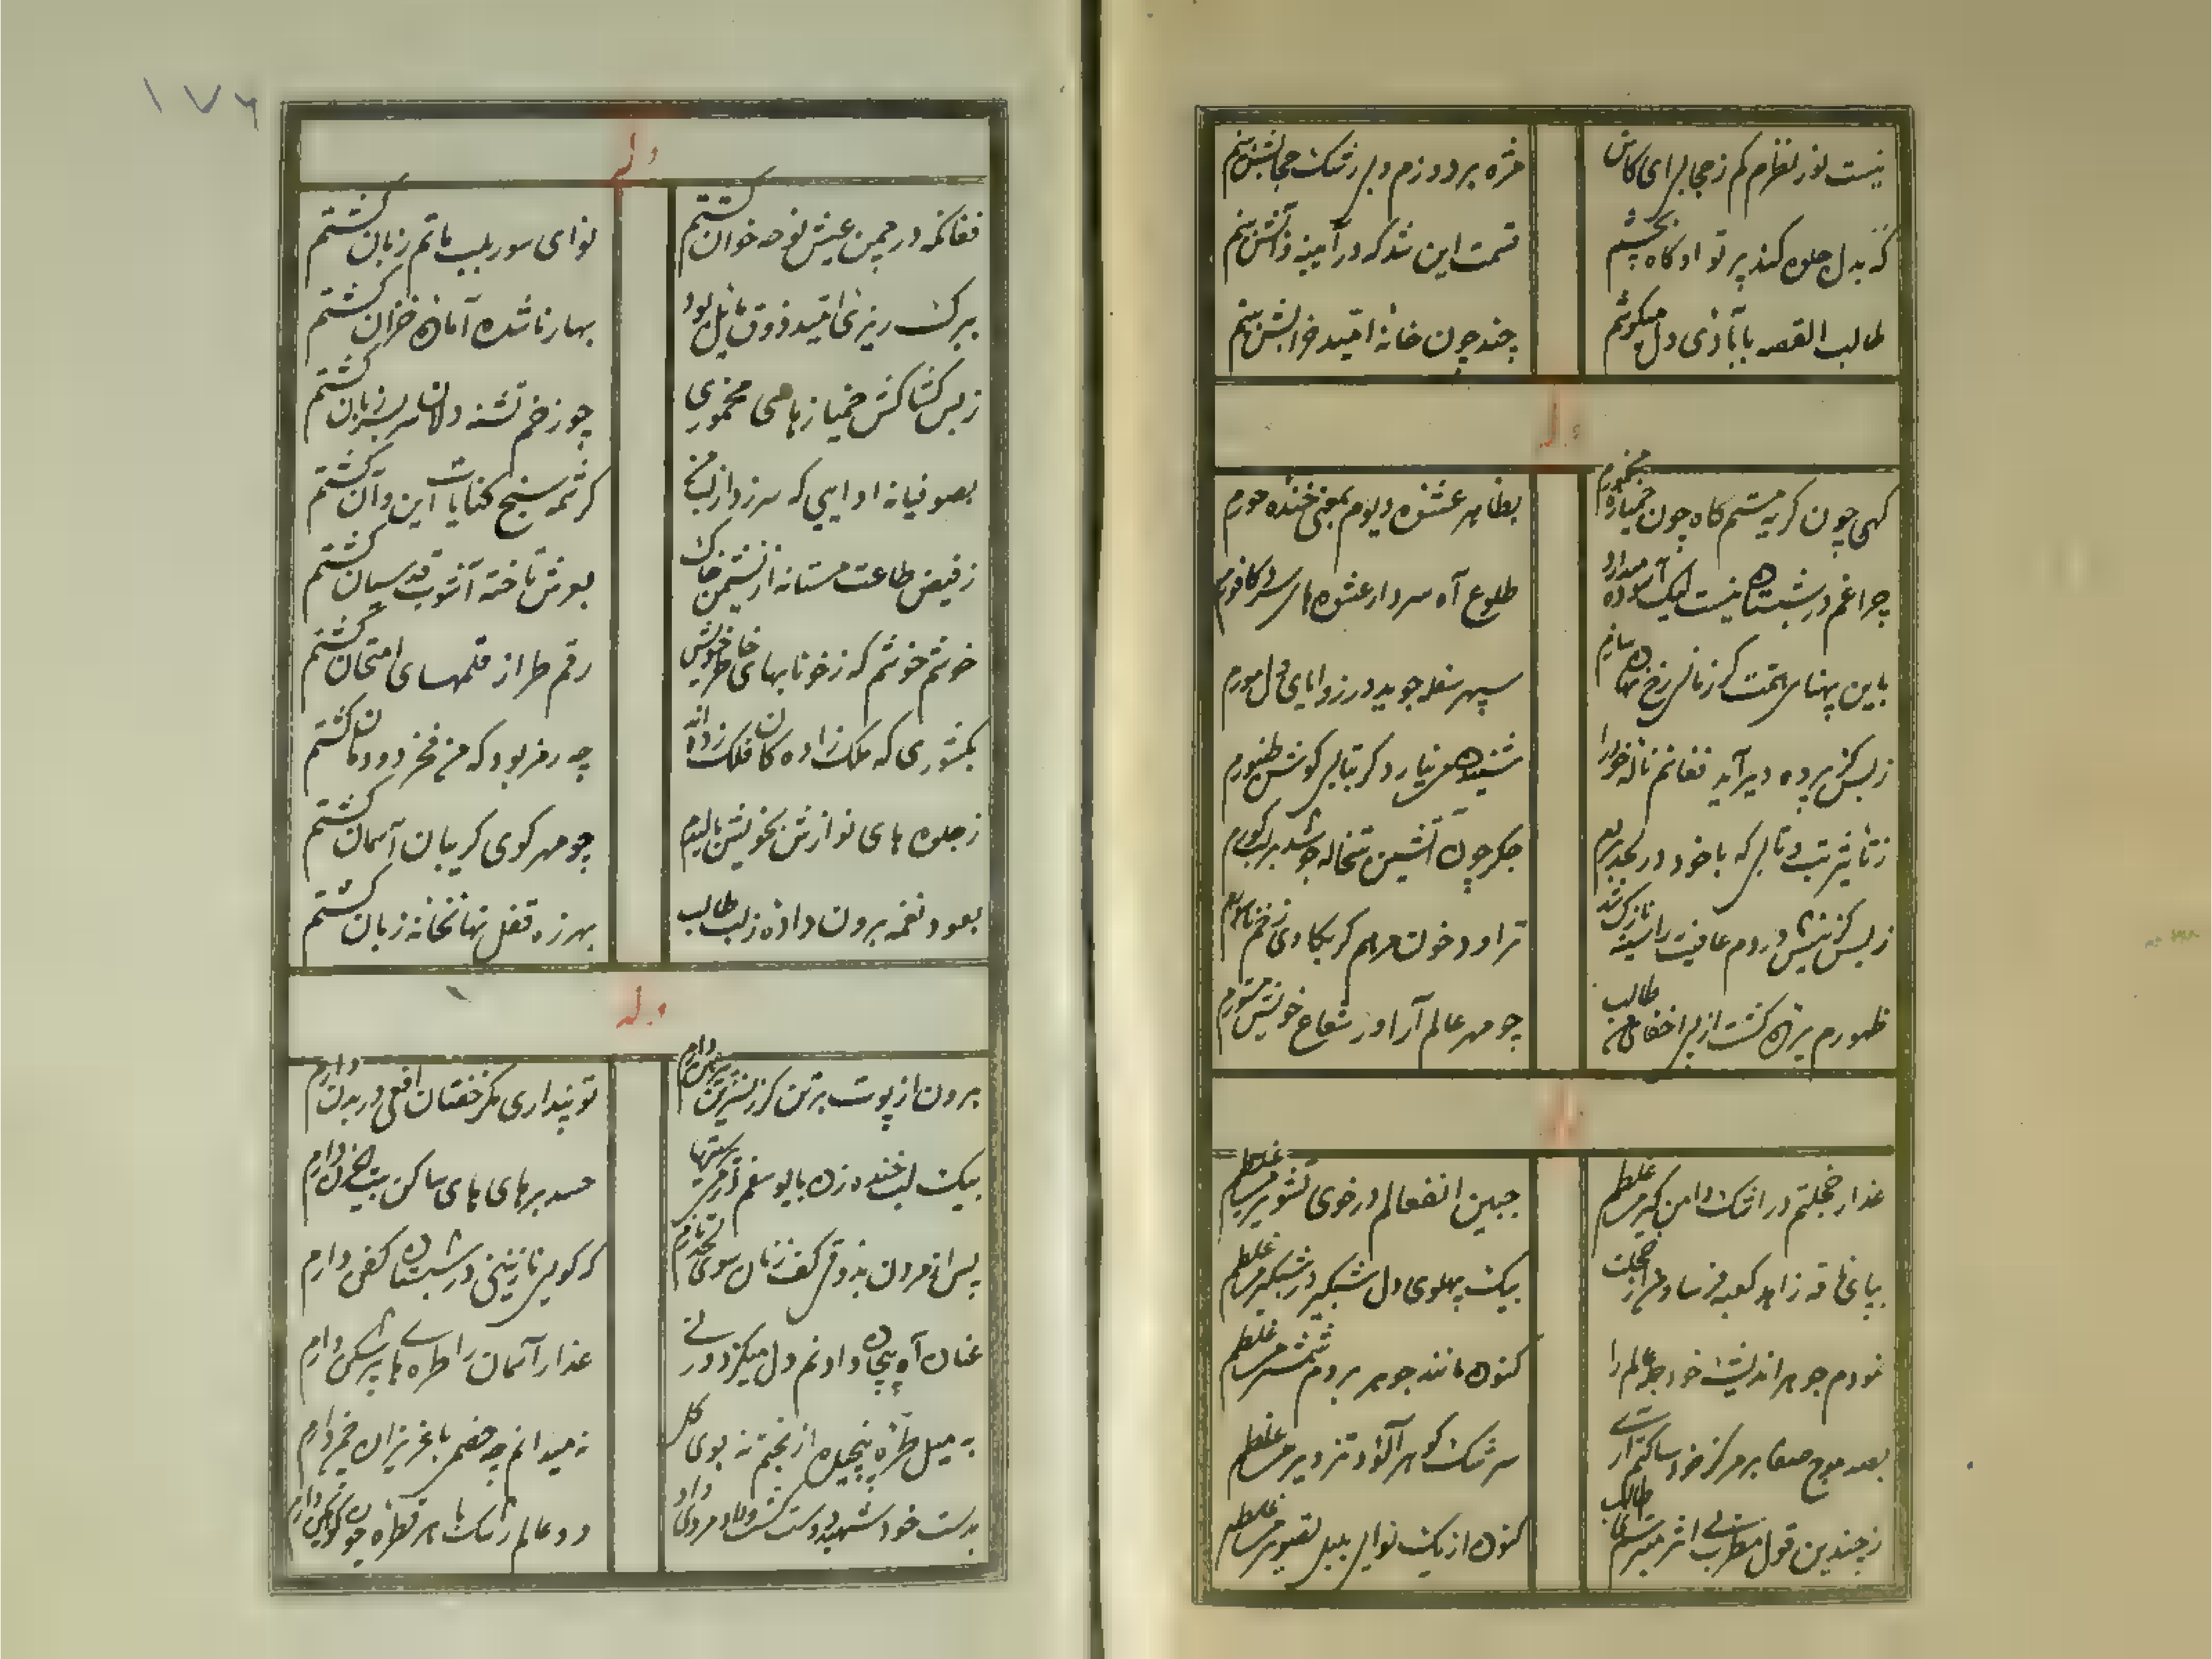 نیست نور نظرم کم ز حجابی ای کاش
مژه بر دوزم و بی رشک حجابش بینم
که بدل جلوه کند پرتو او گاه بچشم
قسمت این شد که در آیینه و آتش بینم
طالب القصه بآبادی دل میکوشم
چند چون خانه امید خرابش بینم
وله
گهی چون گریه مستم گاه چون خمیازه مخمورم
بظاهر عشوه دیوم بمعنی خنده حورم
چراغم در شبستان نیست لیک آسوده میدارد
طلوع آه سرد از عشوه های کافورم
باین پهنای همت گر زمانی رخ نهان سازم
سپهر سفله جوید در زوایای دل مورم
ز بس کز پرده دیر آید فغانم ناله خود را
شنیدن می نیارد گر بتابی گوش طنبورم
ز تأثیر تب و تابی که با خود در لحد بردم
جگر چون آتشین تبخاله جوشد بر لب گورم
ز بس کز نیش دردم عافیت را سینه نازک شد
تراود خون مرهم گر بکاوی زخم ناسورم
ظهورم پرده گشت از بی اخفای من طالب
چو مهر عالم آرا در شعاع خویش مستورم
وله
عذار خجلتم در اشک دامن گیر میغلطم
جبین انفعالم در خوی تشویر میغلطم
بپای ناقه زاهد کعبه فرسا و من از خجلت
بیک پهلوی دل شبگیر در شبگیر میغلطم
نمودم جوهر اندیشه خود جمله عالم را
کنون مانند جوهر بر دم شمشیر میغلطم
بصد موج صفا بر مرکز خود ساکنم آری
سرشک گوهرآلود تزویر میغلطم
ز چندین قول مطرب بی اثر طالب
کنون از یک نوای بلبل تصویر میغلطم
۱۷۶
وله
فغان که در چمن عیش نوحه خوان گشتم
نوای سور بلب ماتم زبان گشتم
ببرگ ریزی امید ذوق مایل بود
بهار ناشده آماده خزان گشتم
ز بس کشاکش خمیازهای مخموری
چو زخم تشنه دهان سربسر زبان گشتم
بصوفیانه ادایی که سر زد از لب من
کرشمه سنج کنایات این و آن گشتم
ز فیض طاعت مستانه از نشیمن خاک
بعرش تاخته آشوب قدسیان گشتم
خوشم خوشم که ز خونابهای خاطر خویش
رقم طراز قلمهای امتحان گشتم
بکشوری که ملک زادگان فلک زده اند
چه رمز بود که من فخر دودمان گشتم
ز جلوه های نوازش بخویش بالیدم
چو مهر گوی گریبان آسمان گشتم
بعود نغمه برون داده ز لب طالب
بهرزه قفل نهانخانه زبان گشتم
وله
برون از پوست بر تن گر ز نسرین پیرهن دارم
تو پنداری مگر خفتان افعی در بدن دارم
بیک لب خنده زد بابوسفم
حسد بر های های ساکن بیت الحزن دارم
پس از مردن بذوقی کف زنان سوی لحد تازم
که گویی نازنینی در شبستان کفن دارم
عنان آه پیچان دادنم دل میگزد ورنی
عذار آسمان را طره ها پرشکن دارم
نه میل طره پیچیده از بختم نه بوی گل
نمیدانم چه خصمی با عزیزان چمن دارم
بدست خود شهید دوست گشت و داد مردی داد
دو عالم رشک با هر قطره خون کوهکن دارم